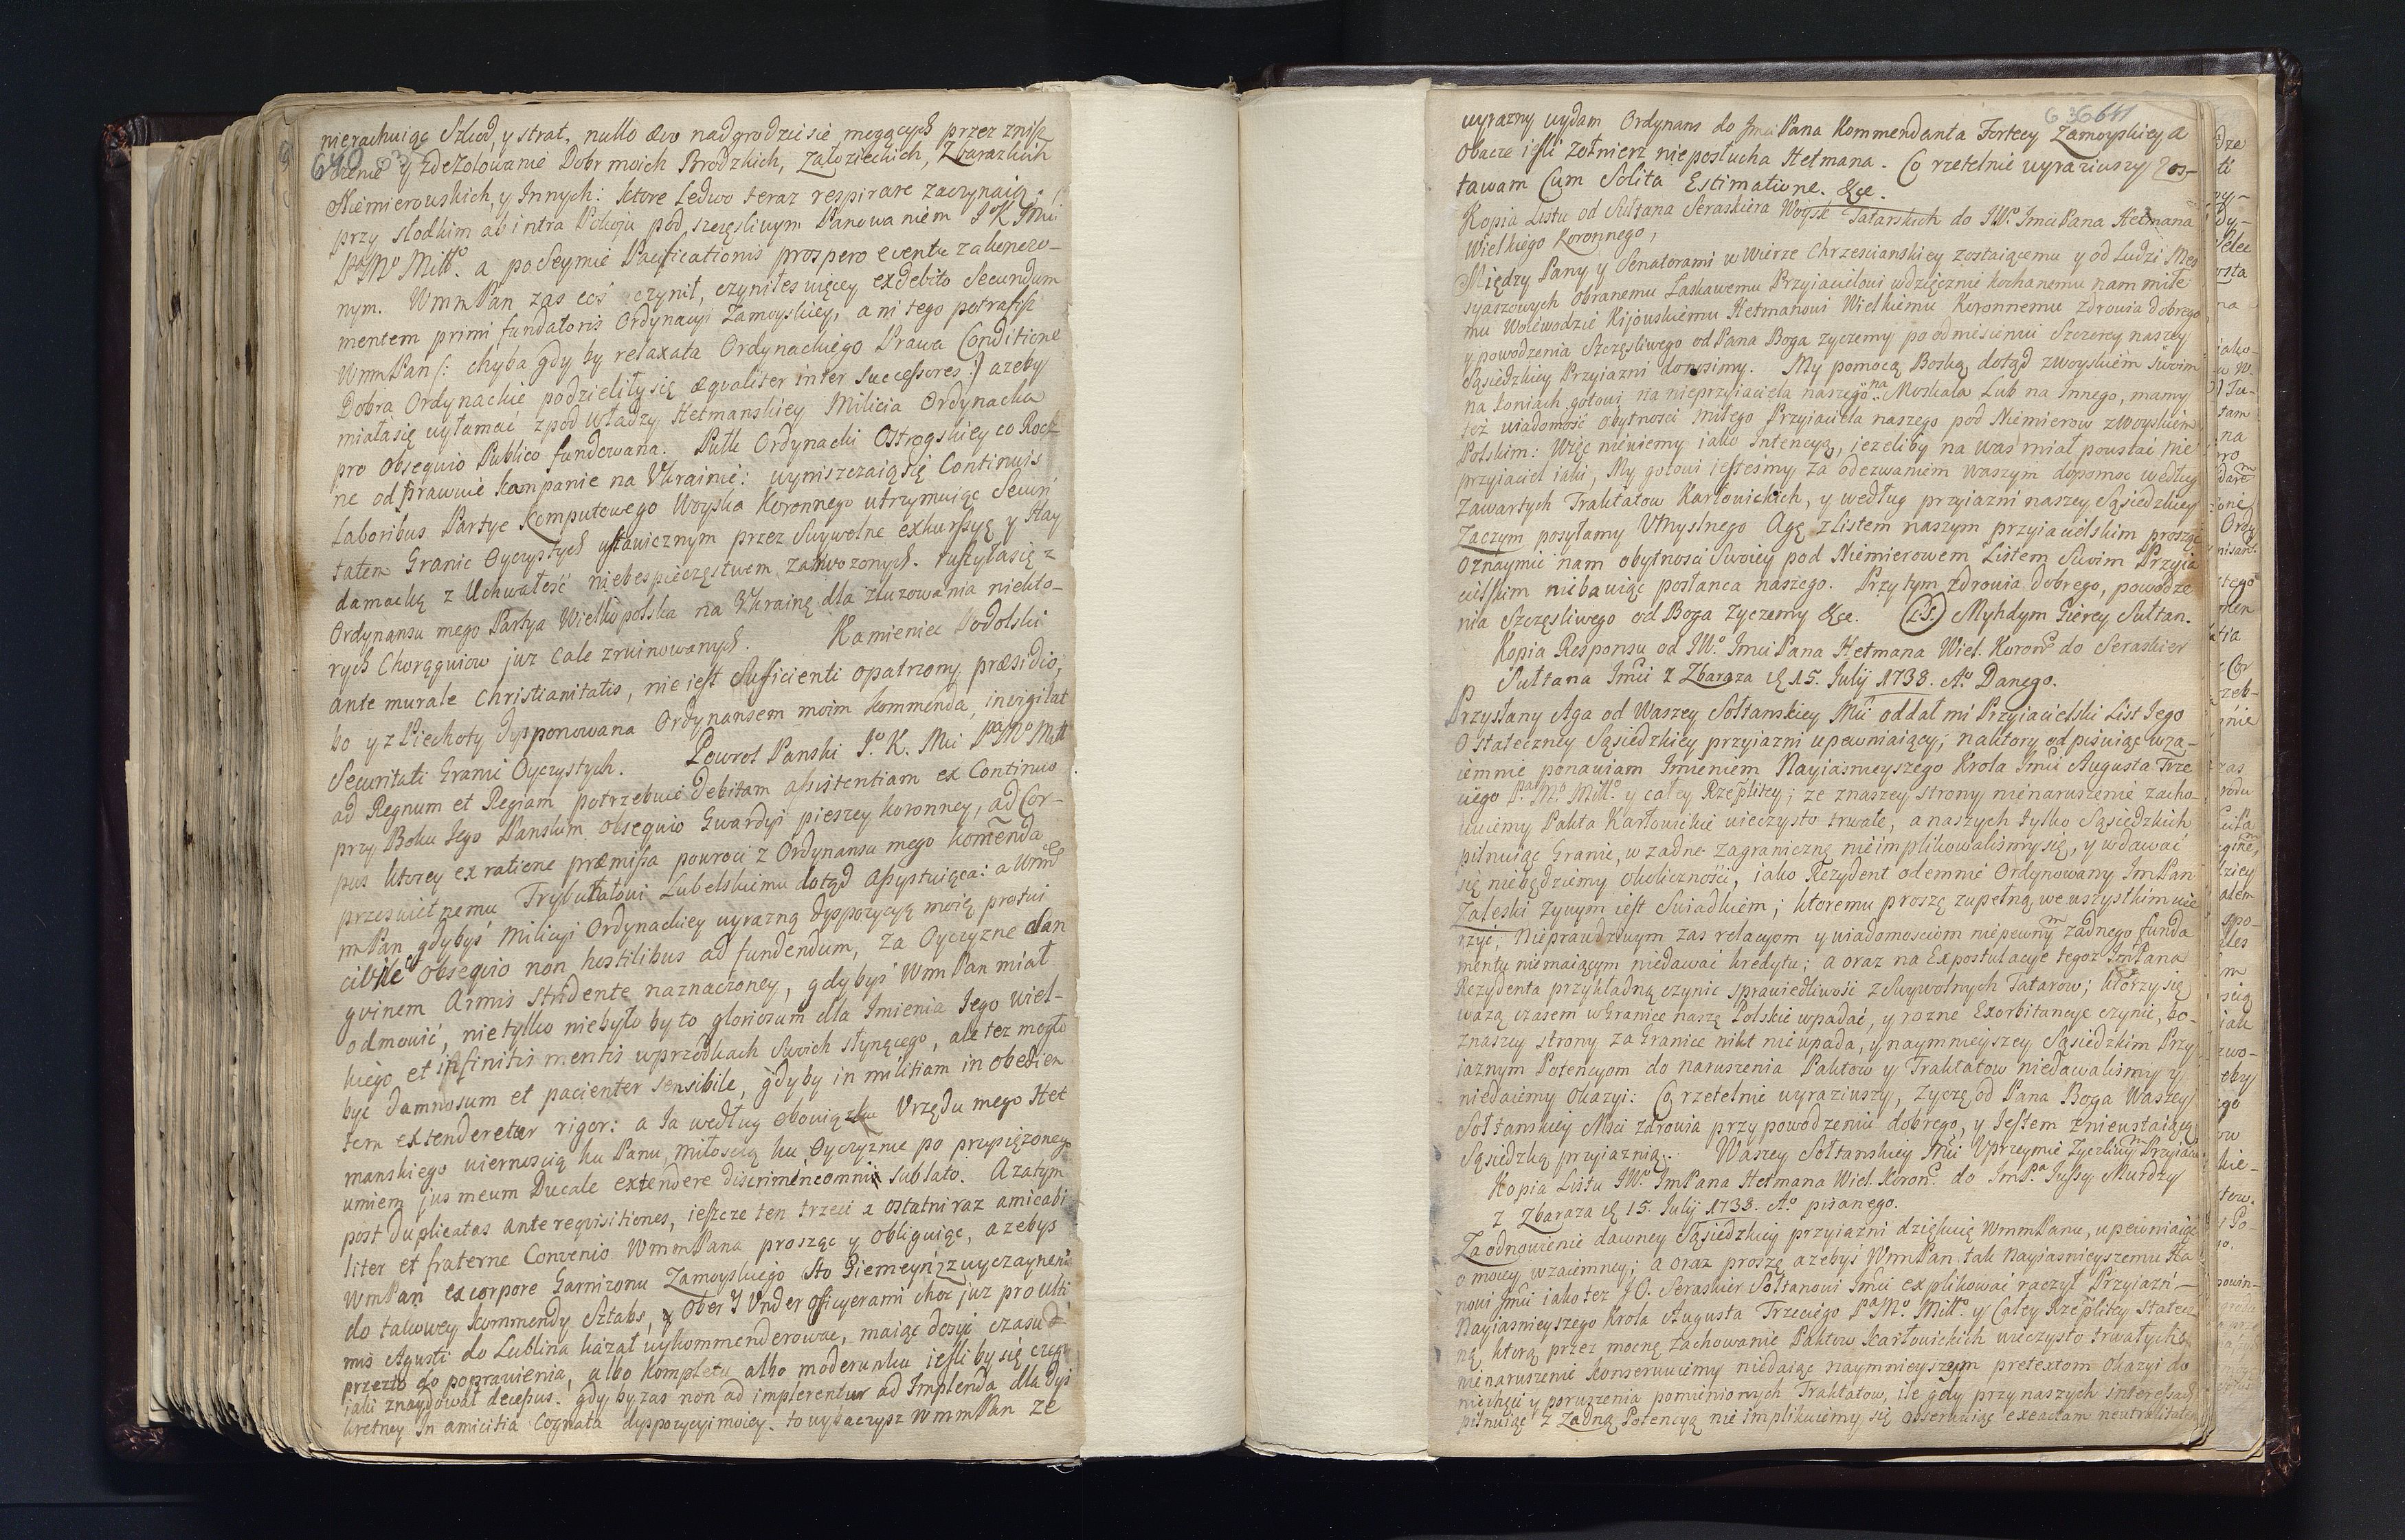 nierachuiąc Szkod, y strat, nullo ævo nadgrodzić się mogących przez znisz
640
czenie y zdezolowanie Dobr moich Brodzkich, Załozieckich, Zbarazkich
Niemierowskich, y Innych: ktore ledwo teraz respirare zaczynaią
przy słodkim ab intra Pokoju pod szczęsliwym Panowaniem J K Jmci
Pa Mo Miłło. a po Seymie Pacificationis prospero eventu zakonczo-
nym. WmmPan zas coś uczynił, czyniłes więcey ex debito Secundum
mentem primi fundatoris Ordynacyi Zamoyskiey, ani tego potrafisz
WmmPan (: chyba gdy by relaxata Ordynackiego Prawa Conditione
Dobra Ordynackie podzieliły się æqualiter inter successores :) azeby
miała się wyłamać z pod władzy Hetmanskiey Milicia Ordynacka
pro obsequio Publico fundowana. Pułk Ordynacki Ostrogskiey co Rocz-
ne odprawuie kampanie na Ukrainie: wyniszczaią się Continuis
Laboribus Partye Komputowego Woyska Koronnego utrzymuiąc Securi
tatem Granic Oyczystych ustawicznym przez Swywolne exkursyę y Hay
damacką z Uchwałość niebespieczęstwem zatrwozonych. ruszyła się z
Ordynansu mego Partya Wielkopolska na Ukrainę dla zluzowania niekto-
rych Chorągwiow juz cale zruinowanych. Kamieniec Podolski
ante murale Christianitatis, nie iest Sufficienti opatrzony præsidio,
bo y z Piechoty dysponowana Ordynansem moim kommenda, invigilat
Securitati Granic Oyczystych. Powrot Panski Jo. K. Mci Pa Mo Miłł
ad Regnum et Regiam, potrzebuie debitam assistentiam ex Continuo
przy Boku Jego Panskim obsequio Gwardyi pieszey koronney, ad Cor-
pus ktorey ex ratione præmissa powroci z Ordynansu mego komenda
przeswietnemu Trybunałowi Lubelskiemu dotąd assystuiąca: a Wm
mPan gdybyś Milicyi Ordynackiey wyrazną dyspozycyą moię profui
cibile obsequio non hostilibus ad fundendum, za Oyczyzne san
gvinem Armis stridente naznaczoney, gdybyś WmmPan miał
odmowić, nie tylko niebyłoby to gloriosum dla Imienia Jego wiel-
kiego et infinitis meritis w przodkach swoich słynącego, ale tez mogło
byc damnosum et pacienter sensibile, gdyby in militiam in obedien
tem extenderetur rigor: a Ja według obowiązku Urzędu mego Het
manskiego wiernoscią ku Panu, miłoscią ku Oyczyznie po przysiężoney
umiem jus meum Ducale extendere discrimine omni sublato. A zatym
post duplicatas ante requisitiones, ieszcze ten trzeci a ostatni raz amicabi
liter et fraterne Convenio WmmPana prosząc y obliguiąc, azebyś
WmPan ex corpore Garnizonu Zamoyskiego Sto Giemeynı zwyczaynemi
do takowey kommendy Sztabs, y Ober y Under officyerami choc juz pro ulti
mis Agusti do Lublina kazał wykommenderowac, maiąc dosyć czasu
przezto do poprawienia, albo kompletu albo moderunku iesli by się czego
iaki znaydował decessus. gdy by zas non ad implerentur ad Implenda dla dys
kretney in amicitia Cognata dyspozycyi moiey. to wybaczysz WmmPan ze
636 641
wyrazny wydam Ordynans do Jmci Pana Kommendanta Fortecy Zamoyskiey a
obacze iesli Zołnierz nieposłucha Hetmana. Co rzetelnie wyraziwszy Zos-
tawam Cum Solita Estimatione. &ce.
Kopia Listu od Sułtana Seraskiera Woysk Tatarskich do JWo. Jmci Pana Hetmana
Wielkiego Koronnego,
Między Pany y Senatorami w wierze Chrzescianskiey zostaiącemu y od Ludzi Mes
syaszowych obranemu Łaskawemu Przyiacielowi wdzięcznie kochanemu nam miłe
mu Woiewodzie Kijowskiemu Hetmanowi Wielkiemu Koronnemu zdrowia dobrego
y powodzenia Szczęsliwego od Pana Boga zyczemy po odmiesieniu Szczerey naszey
Sąsiedzkiey Przyiazni donosimy. My pomocą Boską dotąd z woyskiem swoim
na koniach gotowi na nieprzyiaciela naszego na Moskala Lub na Innego, mamy
tez wiadomość obytnosci miłego Przyiaciela naszego pod Niemierow z woyskiem
Polskim: Więc niewiemy iako Intencyą, iezeliby na was miał powstać nie
przyiaciel iaki, My gotowi iesteśmy za odezwaniem waszym dopomoc według
Zawartych Traktatow Karłowickich, y według przyiazni naszey Sąsiedzkiey
Zaczym posyłamy Umyslnego Agę z listem naszym przyiacielskim prosząc
oznaymić nam obytnosci Swoiey pod Niemierowem Listem Swoim Przyia
cielskim niebawiąc posłanca naszego. Przytym zdrowia dobrego, powodze
nia Szczęsliwego od Boga zyczemy &ce. (L.S.) Myhdym Gierey Sułtan.
Kopia Responsu od JWo. Jmci Pana Hetmana Wiel. Koronego do Seraskier
Sułtana Jmci z Zbaraza d 15. Julij 1738. Ao. Danego.
Przysłany Aga od Waszey Sołtanskiey Mci oddał mi Przyiacielski List Jego
O stateczney Sąsiedzkiey przyiazni upewniaiący; na ktory odpisuiąc wza-
iemnie ponawiam Imieniem Nayiasnieyszego Krola Jmci Augusta Trze
ciego Pa. Mo. Miłło. y całey Rzeplitey; ze z naszey strony nienaruszenie zacho-
wuiemy Pakta Karłowickie wieczysto trwałe, a naszych tylko Sąsiedzkich
pilnuiąc Granic, w zadne zagraniczną nieimplikowalismy się, y wdawać
się niebędziemy okoliczności, iako Rezydent odemnie Ordynowany JmPan
Zaleski zywym iest Swiadkiem; ktoremu proszę zupełną we wszystkim wie
rzyć, Nieprawdziwym zas relacyom y wiadomosciom niepewnym zadnego funda
mentu niemaiącym niedawać kredytu; a oraz na Expostulacye tegoz JmPana
Rezydenta przykładną czynic sprawiedliwość z Swywolnych Tatarow; ktorzy się
wazą czasem w Granice naszę Polskie wpadać, y rozne Exorbitancye czynić, bo-
z naszey strony za Granice nikt nie wpada, y naymnieyszey Sąsiedzkim Przy
iaznym Potencyom do naruszenia Paktow y Traktatow niedawalismy y
niedaiemy okazyi: Co rzetelnie wyraziwszy, zyczę od Pana Boga Waszey
Sołtanskiey Mci zdrowia przy powodzeniu dobrego, y Jestem z nieustaiącą
Sąsiedzką przyiaznią. Waszey Sołtanskiey Jmci Uprzeymie Zyczliwym Przyiaci
Kopia Listu JWo. JmPana Hetmana Wiel. Korono. do JmPa. Jussy Murdzy
z Zbaraza d 15. Julij 1738. Ao. pisanego.
Za odnowienie dawney Sąsiedzkiey przyiazni dziękuię WmmPanu, upewniaiąc
o moiey wzaiemney; a oraz proszę azebyś WmmPan tak Nayiasnieyszemu Ha
nowi Jmci iako tez J O. Seraskier Sołtanowi Jmci explikować raczył Przyiazń
Nayiasnieyszego Krola Augusta Trzeciego Pa Mo. Miłło. y Całey Rzeplitey Statecz
ną, ktorą przez mocnę zachowanie Paktow Karłowickich wieczysto trwałych
nienaruszenie konserwuiemy niedaiąc naymnieyszym pretextom okazyi do
niechęci y poruszenia pomienionych Traktatow, ile gdy przy naszych interessach
pilnuiąc z Zadną Potencyą nie implikuiemy się observuiąc exactam neutralitatem